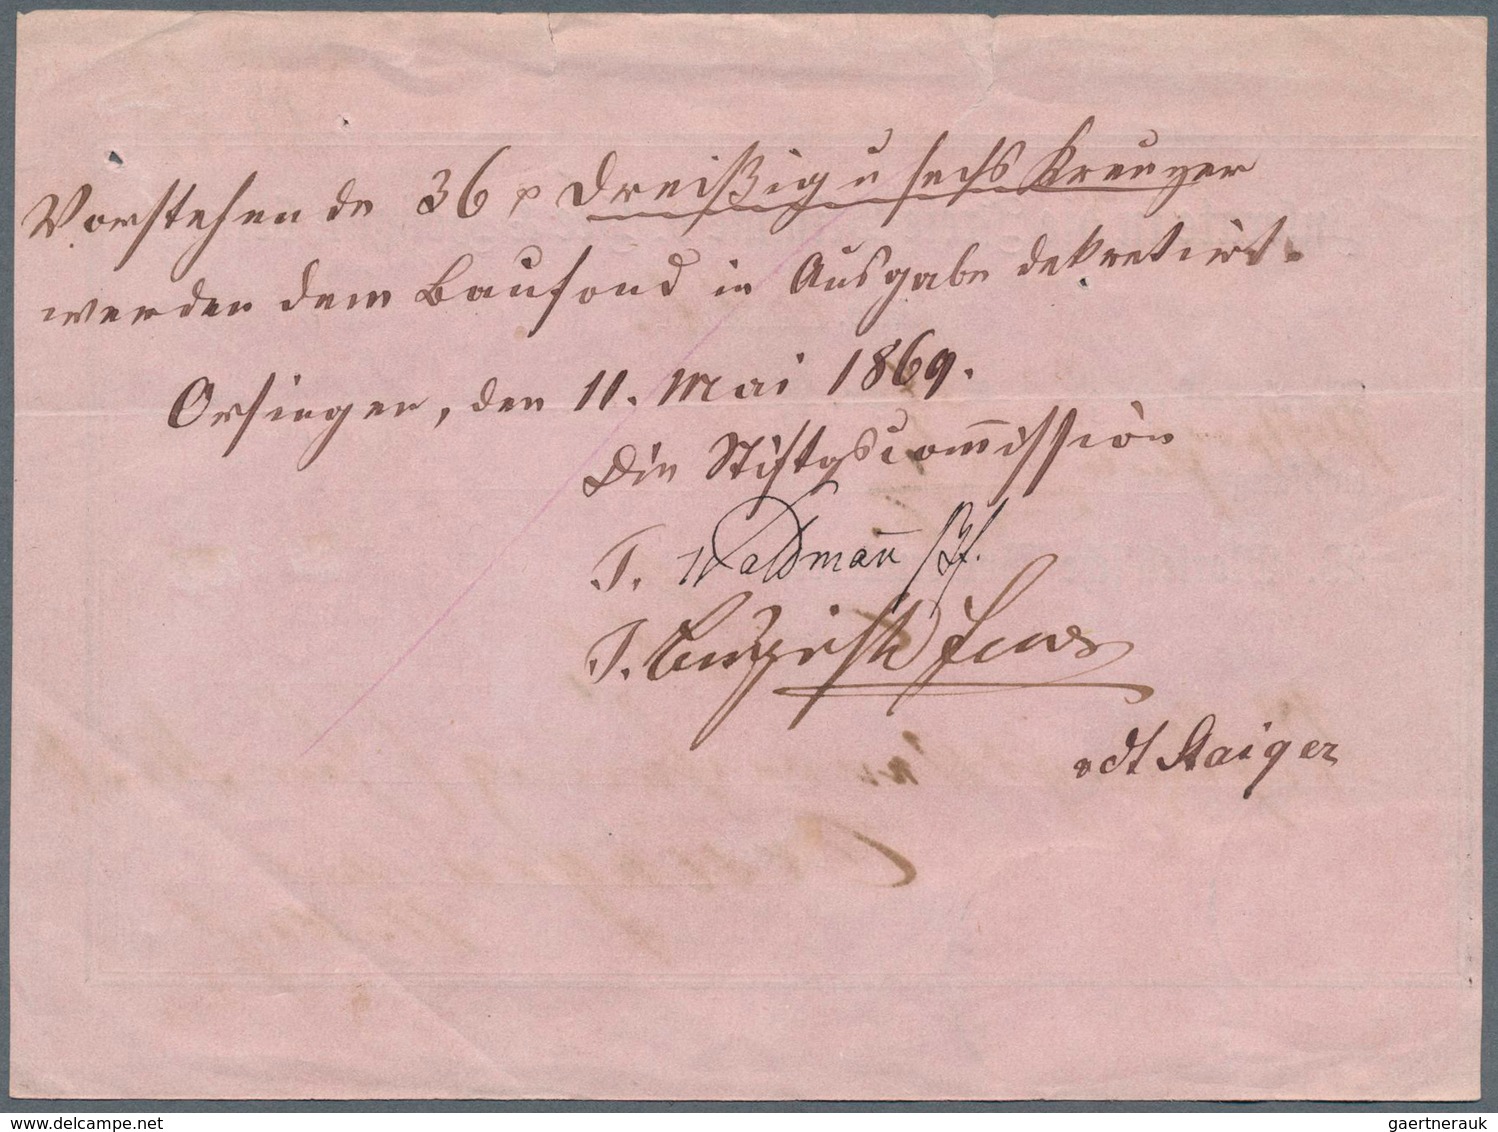 Vorstehende 36 x Dreißig u sechs Kreuzer
werden dem Baufond in Ausgabe dekretirt.
Orsingen, den 11. Mai 1869.
Die Stiftgscommission
T. Waldmann Pf.
T.
vdt Staiger
gaertnerauk